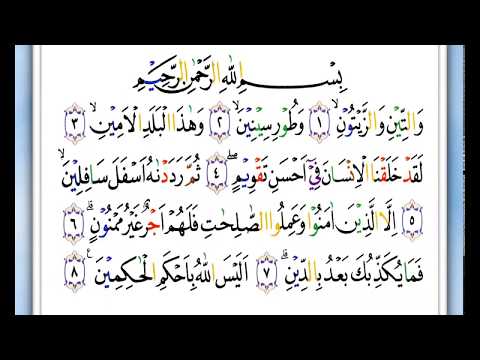 بِسْمِ اللهِ الرَّحْمٰنِ الرَّحِيْمِ
وَالتِّيْنِ وَالزَّيْتُوْنِۙ ﴿١﴾ وَطُوْرِ سِيْنِيْنَۙ ﴿٢﴾ وَهٰذَا الْبَلَدِ الْاَمِيْنِۙ ﴿٣﴾
لَقَدْ خَلَقْنَا الْاِنْسَانَ فِيْٓ اَحْسَنِ تَقْوِيْمٍۖ ﴿٤﴾ ثُمَّ رَدَدْنٰهُ اَسْفَلَ سَافِلِيْنَۙ
﴿٥﴾ اِلَّا الَّذِيْنَ اٰمَنُوْا وَعَمِلُوا الصّٰلِحٰتِ فَلَهُمْ اَجْرٌ غَيْرُ مَمْنُوْنٍۗ ﴿٦﴾
فَمَا يُكَذِّبُكَ بَعْدُ بِالدِّيْنِۗ ﴿٧﴾ اَلَيْسَ اللهُ بِاَحْكَمِ الْحٰكِمِيْنَ ࣖ ﴿٨﴾